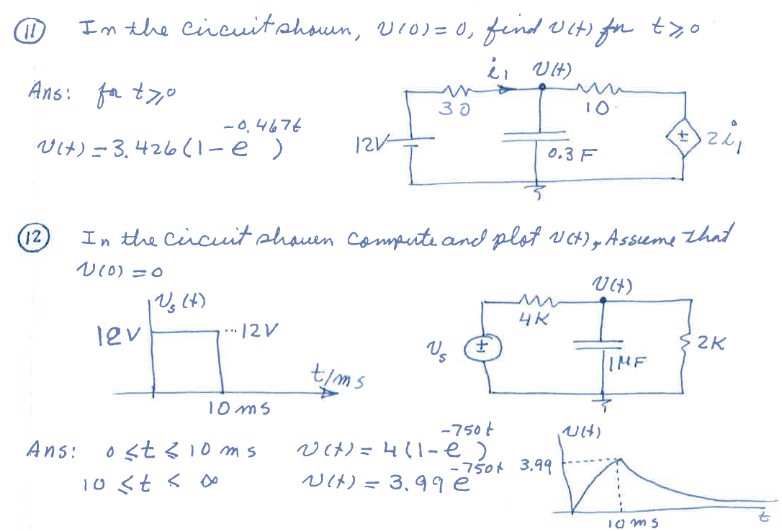 (11) In the circuit shown, v(0) = 0, find v(t) for t ≥ 0
Ans: for t ≥ 0
v(t) = 3.426 (1 - e^-0.467t)
i₁ v(t)
30
10
12V
0.3 F
2i₁
(12) In the circuit shown compute and plot v(t). Assume that
v(0) = 0
Vs(t)
12V
... 12V
t/ms
10 ms
v(t)
4K
Vs
1MF
2K
Ans: 0 ≤ t ≤ 10 ms v(t) = 4 (1 - e^-750t)
10 ≤ t < ∞ v(t) = 3.99 e^-750t
v(t)
3.99
10 ms
t